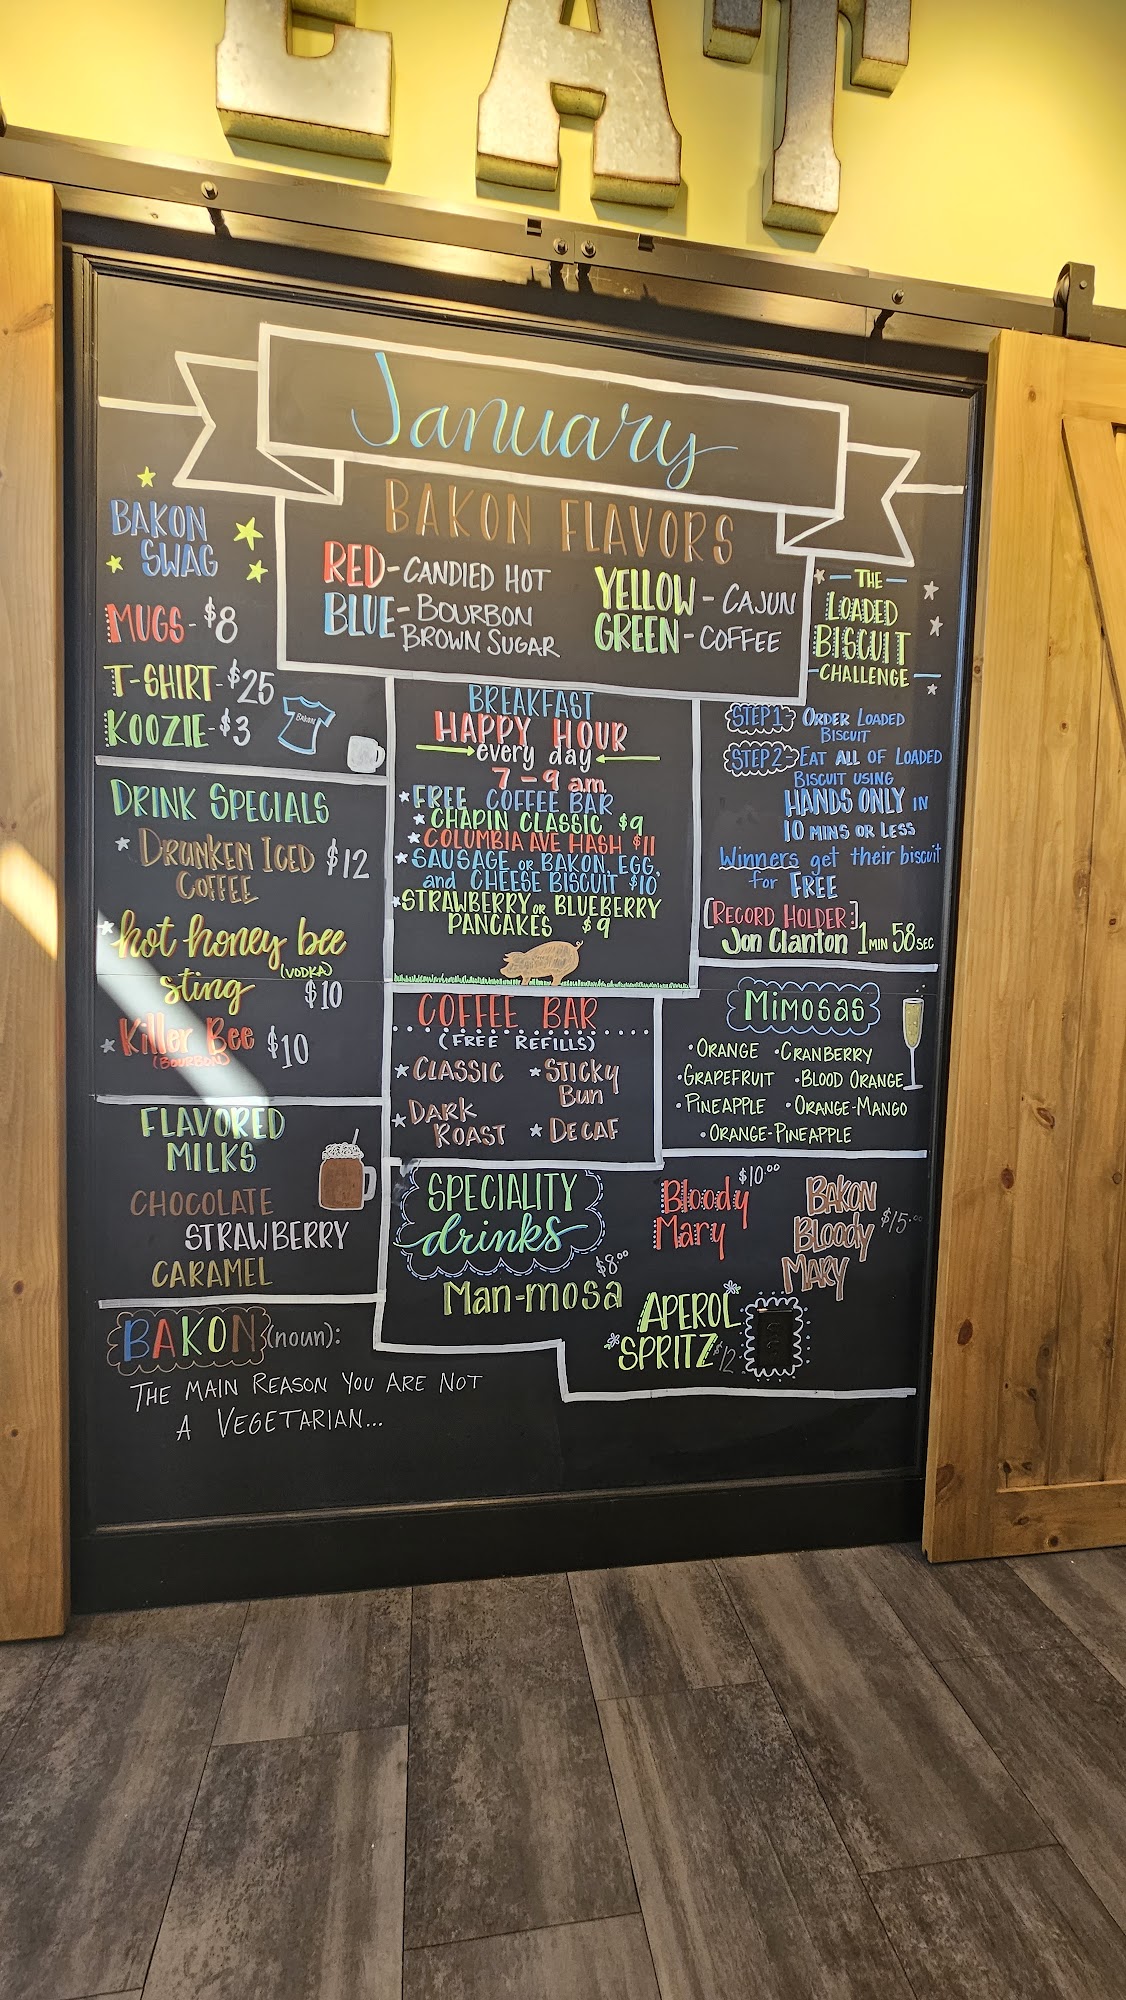 EAT
January
BAKON FLAVORS
RED-CANDIED HOT
BLUE-BOURBON
BROWN SUGAR
YELLOW - CAJUN
GREEN-COFFEE
BAKON
SWAG
MUGS-$8
T-SHIRT-$25
KOOZIE-$3
BAKON
DRINK SPECIALS
DRUNKEN ICED $12
COFFEE
hot honey bee
sting (VODKA)
$10
Killer Bee $10
(BOURBON)
FLAVORED
MILKS
CHOCOLATE
STRAWBERRY
CARAMEL
BAKON (noun):
THE MAIN REASON YOU ARE NOT
A VEGETARIAN...
BREAKFAST
HAPPY HOUR
every day
7-9 am
FREE COFFEE BAR
CHAPIN CLASSIC $9
COLUMBIA AVE HASH $11
SAUSAGE OR BAKON, EGG,
and CHEESE BISCUIT $10
STRAWBERRY OR BLUEBERRY
PANCAKES $9
COFFEE BAR
(FREE REFILLS)
CLASSIC
STICKY
BUN
DARK
ROAST
DECAF
THE
LOADED
BISCUIT
CHALLENGE
STEP 1- ORDER LOADED
BISCUIT
STEP 2- EAT ALL OF LOADED
BISCUIT USING
HANDS ONLY IN
10 MINS OR LESS
Winners get their biscuit
for FREE
[RECORD HOLDER:]
Jon Clanton 1 MIN 58 SEC
MIMOSAS
•ORANGE •CRANBERRY
•GRAPEFRUIT •BLOOD ORANGE
•PINEAPPLE •ORANGE-MANGO
•ORANGE-PINEAPPLE
SPECIALITY
drinks
Man-mosa $8.00
Bloody $10.00
Mary
BAKON
Bloody $15.00
MARY
APEROL
SPRITZ $12